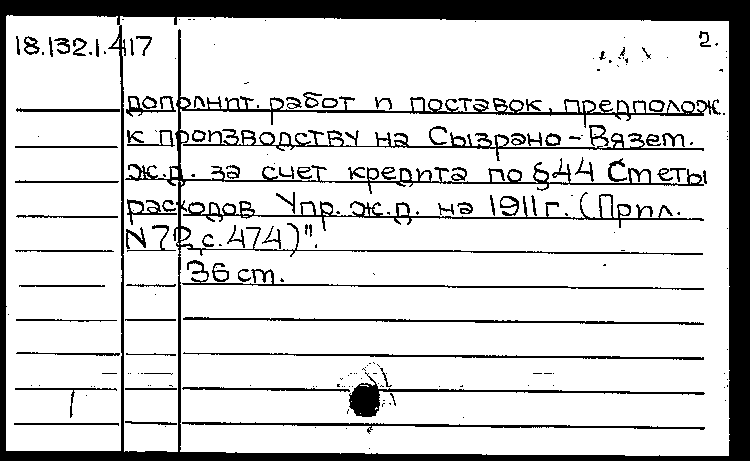 18.132.1.417
2.
дополнит. работ и поставок, предполож.
к производству на Сызрано-Вязем.
ж.д. за счет кредита по §44 Сметы
расходов Упр. ж.д. на 1911г. (Прил.
N72,с.474)".
36 ст.